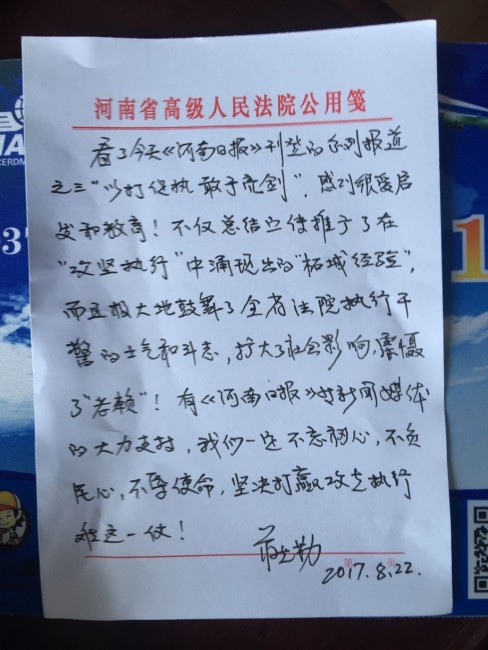 河南省高级人民法院公用笺
看了今天《河南日报》刊登的系列报道
之三“以打促执 敢于亮剑”，感到很受启
发和教育！不仅总结宣传推广了在
“攻坚执行”中涌现出的“柘城经验”，
而且极大地鼓舞了全省法院执行干
警的士气和斗志，扩大了社会影响，震慑
了“老赖”！有《河南日报》等新闻媒体
的大力支持，我们一定不忘初心，不负
民心，不辱使命，坚决打赢攻克执行
难这一仗！
2017.8.22.
1